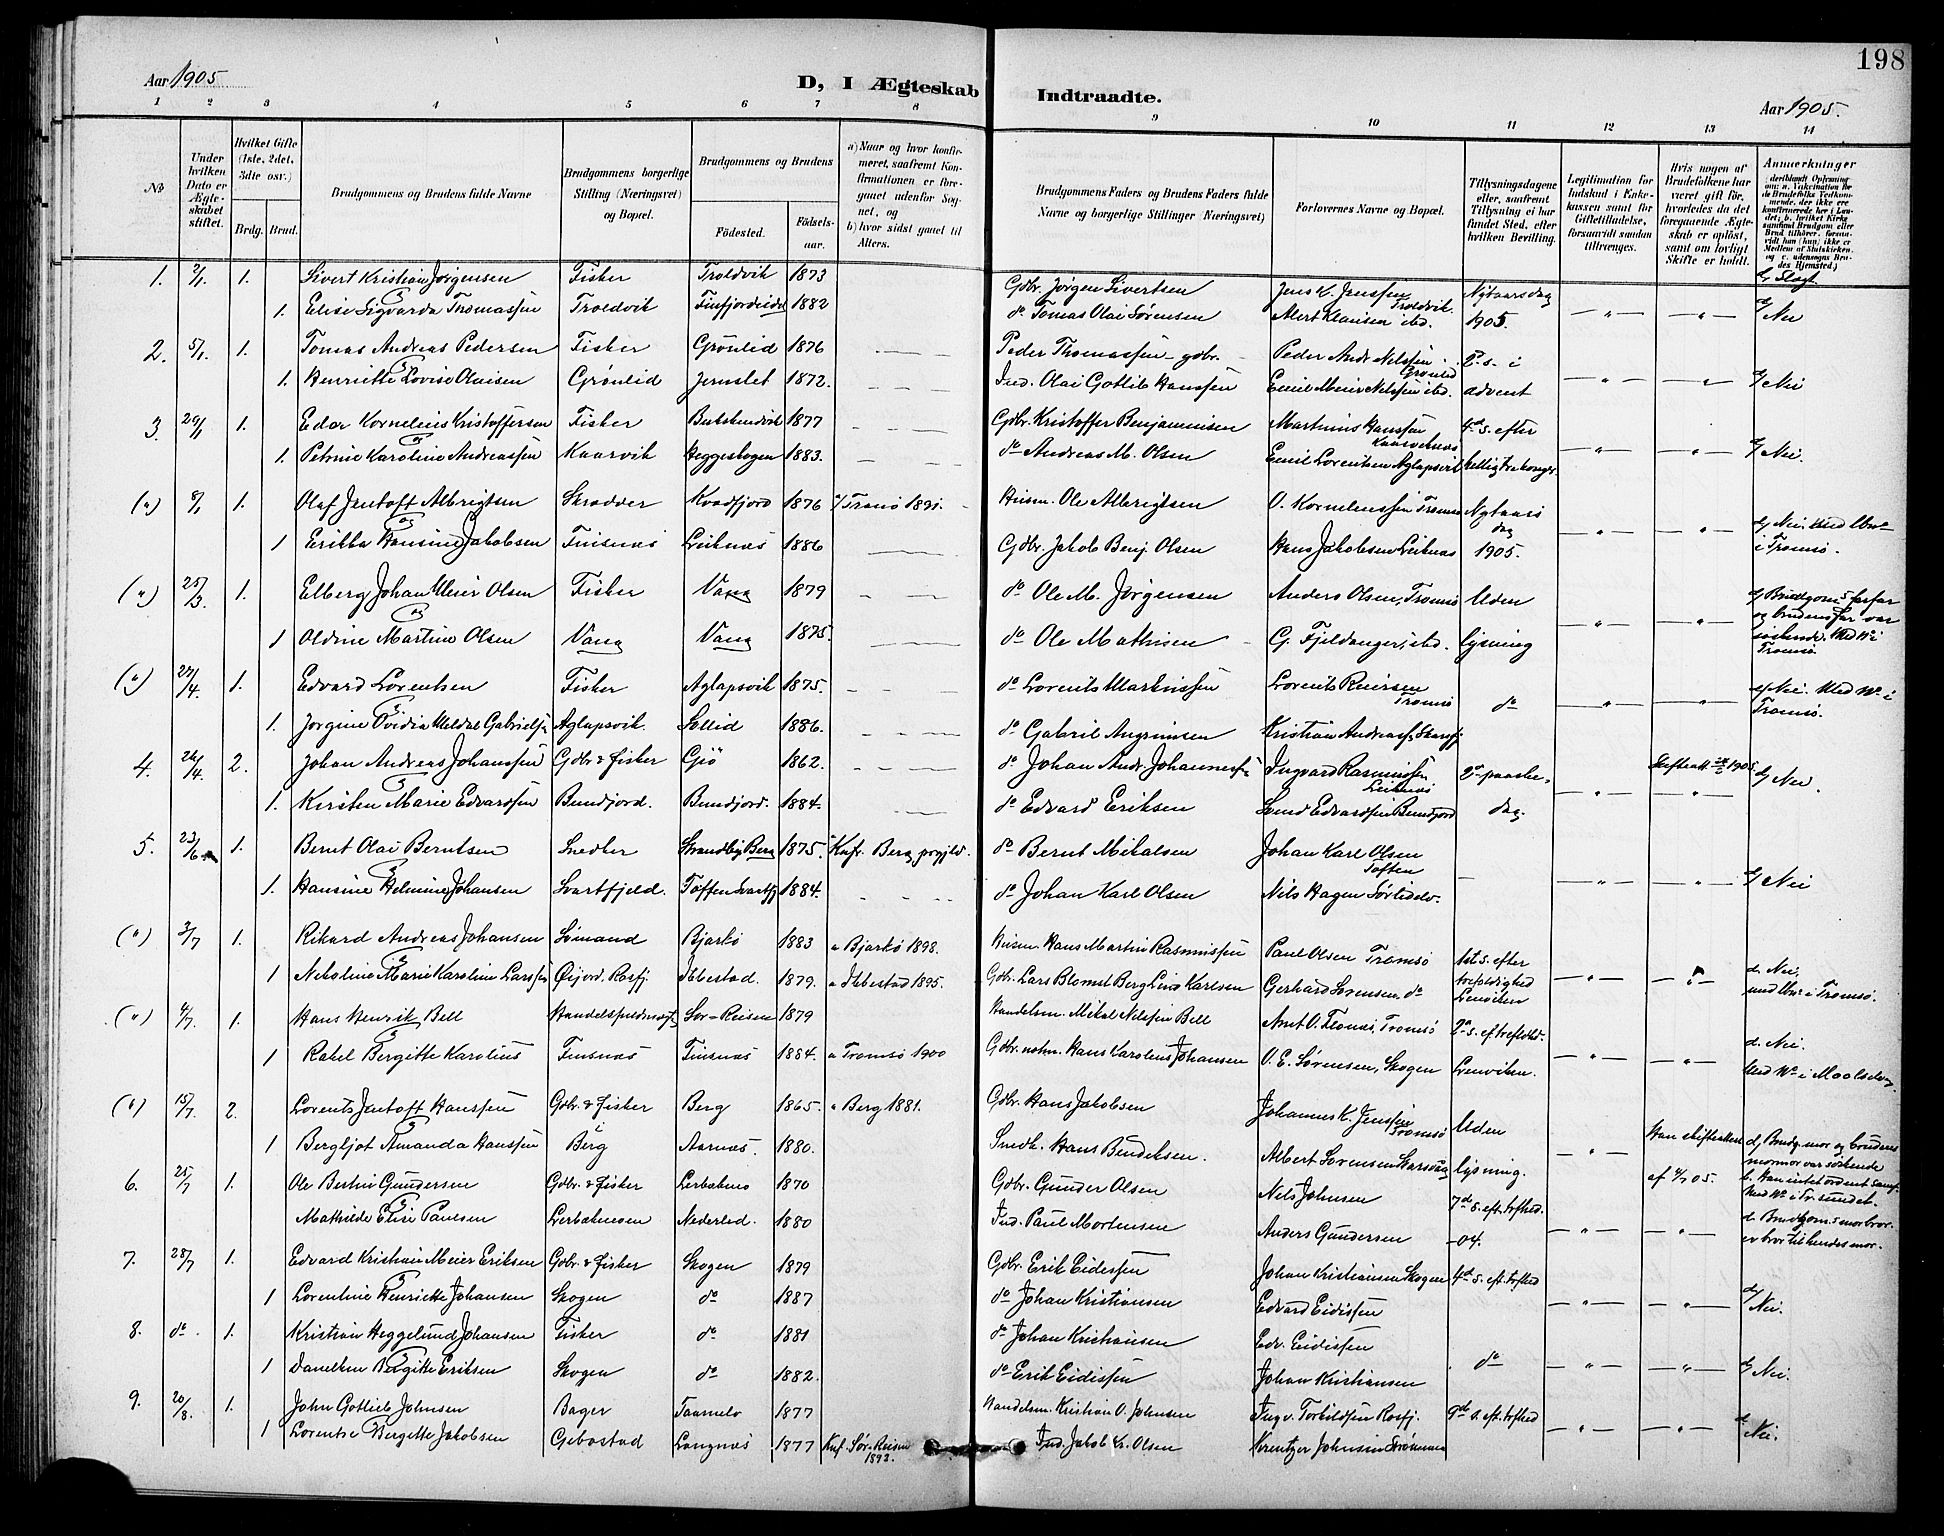 198
Aar 1905
D, I Ægteskab Indtraadte.
Aar 1905.
1 2 3 4 5 6 7 8 9 10 11 12 13 14
No
Under hvilken Dato er Ægteskabet stiftet.
Hvilket Gifte (1ste, 2det, 3dte osv.)
Brdg. Brud.
Brudgommens og Brudens fulde Navne
Brudgommens borgerlige Stilling (Næringsvei) og Bopæl.
Brudgommens og Brudens
Fødested. Fødselsaar.
a) Naar og hvor konfirmeret, saafremt Konfirmationen er foregaaet udenfor Sognet, og
b) hvor sidst gaaet til Alters.
Brudgommens Faders og Brudens Faders fulde Navne og borgerlige Stillinger (Næringsvei)
Forlovernes Navne og Bopæl.
Tillysningsdagene eller, saafremt Tillysning ei har fundet Sted, efter hvilken Bevilling.
Legitimation for Indskud i Enkekassen samt for Giftetilladelse, forsaavidt saadan tiltrenges.
Hvis nogen af Brudefolkene har været gift før, hvorledes da det foregaaende Ægteskab er opløst, samt om lovligt Skifte er holdt.
Anmerkninger
1. 2/1 1. Sivert Kristian Jørgensen Fisker Troldvik 1873 Gdbr. Jørgen Sivertsen Jens K. Jenssen Troldvik Nytaarsdag
og 1. Elise Sigvarda Thomassen Troldvik Finfjordeidet 1882 do Tomas Olai Sørensen Alert Klausen ibd. 1905. — " — — " — d/ Nei
2. 5/1 1. Tomas Andreas Pedersen Fisker Grönlid 1876 Peder Thomassen - gdbr. Peder Andr Nilssen Grønlid 2. s. i
og 1. Henriette Lovise Olaisen Grönlid 1872. Ind. Olai Gotlib Hanssen Emil Meier Nilssen ibd. advent — " — — " — d/ Nei
3. 20/1 1. Edor Kornelius Kristoffersen Fisker 1877 Gdbr. Kristoffer Benjaminsen Martinus Hanssen 4de s. efter
og 1. Petrine Karoline Andreassen Kaarvik Heggeskogen 1883. do Andreas M. Olsen Emil Lorentsen Aglapsvik helligtrekonger — " — — " — d/ Nei.
(") 8/1 1. Olaf Jentoft Albrigtsen Skrædder Kvædfjord 1876 a/ Tromsö 1891. Husm. Ole Albrigtsen O. Korneliussen Tromsø Nytaars
og 1 Erikka Hansine Jakobsen Finsnæs Leiknæs 1886 Gdbr. Jakob Benj. Olsen Hans Jakobsen Leiknæs dag 1905. — " — — " — d/ Nei. i Tromsø.
(") 25/3. 1. Elberg Johan Meier Olsen Fisker Vang 1879 do Ole M. Jørgensen Anders Olsen, Tromsø Uden
og 1 Oldine Martine Olsen Vang Vang 1875. do Ole Mathisen G. Fjeldanger, ibd. lysning — " — — " — d/ Brudgoms farfar og brudens far var søskende. Med No i Tromsø
(") 27/4. 1. Edvard Lorentsen Fisker Aglapsvik 1875. do Lorents Martinussen Lorents Reiersen Tromsø
og 1. Jørgine Ovidia Meldal Gabrielsen Aglapsvik. Sollid 1886. do Gabriel Angrimsen Kristian Andreass. do — " — — " — d/ Nei. Med No i Tromsø.
4. 26/4. 2. Johan Andreas Johanssen Gdbr & fisker Gjö 1862. do Johan Andr. Johannessen Ingvard Rasmussen Leiknæs 2n paaske- 1905
og 1. Kirsten Marie Edvardsen Bundjord. Bundjord. 1884. do Edvard Eriksen Edvardsen Bundjord dag. — " — — " — d/ Nei.
5. 23/6 1. Bernt Olai Berntsen Snedker Strandby Berg 1875. Knf. Berg prgjld. do Bernt Mikalsen Johan Karl Olsen Toften
og 1. Hansine Helmine Johansen Svartfjeld. Toften Svartfj 1884. do Johan Karl Olsen Nils Hagen — — " — — " — d/ Nei
(") 2/7 1. Rikard Andreas Johansen Sømand Bjarkö 1883 a Bjarkö 1898. Husm. Hans Martin Rasmussen Paul Olsen Tromsø 1st s. efter
og 1 Nekoline Marie Karoline Larssen Øijord, Rosfj. Ibbestad. 1879. a Ibbestad 1895. Gdbr. Lars Blomst Berg Karlsen Gerhard Sørensen do trefoldighed Lenviken — " — — " — d. Nei. i Tromsø.
(") 4/7. 1. Hans Henrik Bell Sör-Reisen 1879 Handelsm. Mikal Nilssen Bell Arnt O. Tromsø 2n s. eft trefoldhd.
og 1 Rakel Bergitte Karolius Finsnæs Finsnæs 1884. a Tromsö 1900 Gdbr. Hans Karolius Johansen O. E. Sørensen, Skogen Lenviken. — " — — " — d. Nei. Med No i Maalselv
(") 15/7. 2. Lorents Jentoft Hanssen Gdbr. & fisker Berg 1865. a Berg 1881. Gdbr. Hans Jakobsen Johannes K. Jenssen Tromsø Uden
og 1 Bergljot Amanda Hanssen Berg Aarnæs. 1880. Snedk. Hans Bendiksen. Albert Sørensen lysning. — " — Han af 4/7 05. d/ Brudg. mor og brudens mormor var søskende
6. 25/7 1. Ole Bertin Gundersen Gdbr. & fisker 1870 Gdbr. Gunder Olsen Nils Johnsen 7de s. eft. trfhed.
og Mathilde Elise Paulsen 1880 Ind. Paul Mortensen Anders Gundersen -04. — " — — " — d. Brudgoms morbror er bror til hendes mor.
7. 28/7 1. Edvard Kristian Meier Eriksen Gdbr. & fisker Skogen 1879 Gdbr. Erik Eidissen Johan Kristiansen Skogen 4de s. eft. trfhed
og 1 Lorentine Henriette Johansen Skogen do 1887 do Johan Kristiansen Edvard Eidissen — " — — " — d/ Nei.
8. do. 1. Kristian Heggelund Johansen Fisker do 1881 do Johan Kristiansen Edv. Eidissen
og 1 Danelken Bergitte Eriksen Skogen do 1882. do Erik Eidissen Johan Kristiansen do — " — — " — d/ Nei.
9. 20/8. 1. John Gotlieb Johnsen Bager 1877 Handelsm. Kristian O. Johnsen Ingv. Torkildsen Rosfj. 9de s. eft. trfhed
1 Lorentse Bergitte Jakobsen Gibostad Langnæs 1877 Knf. Sør-Reisen 1892. Ind. Jakob Kr. Olsen Krentzer Johnsen — " — — " — d Nei.